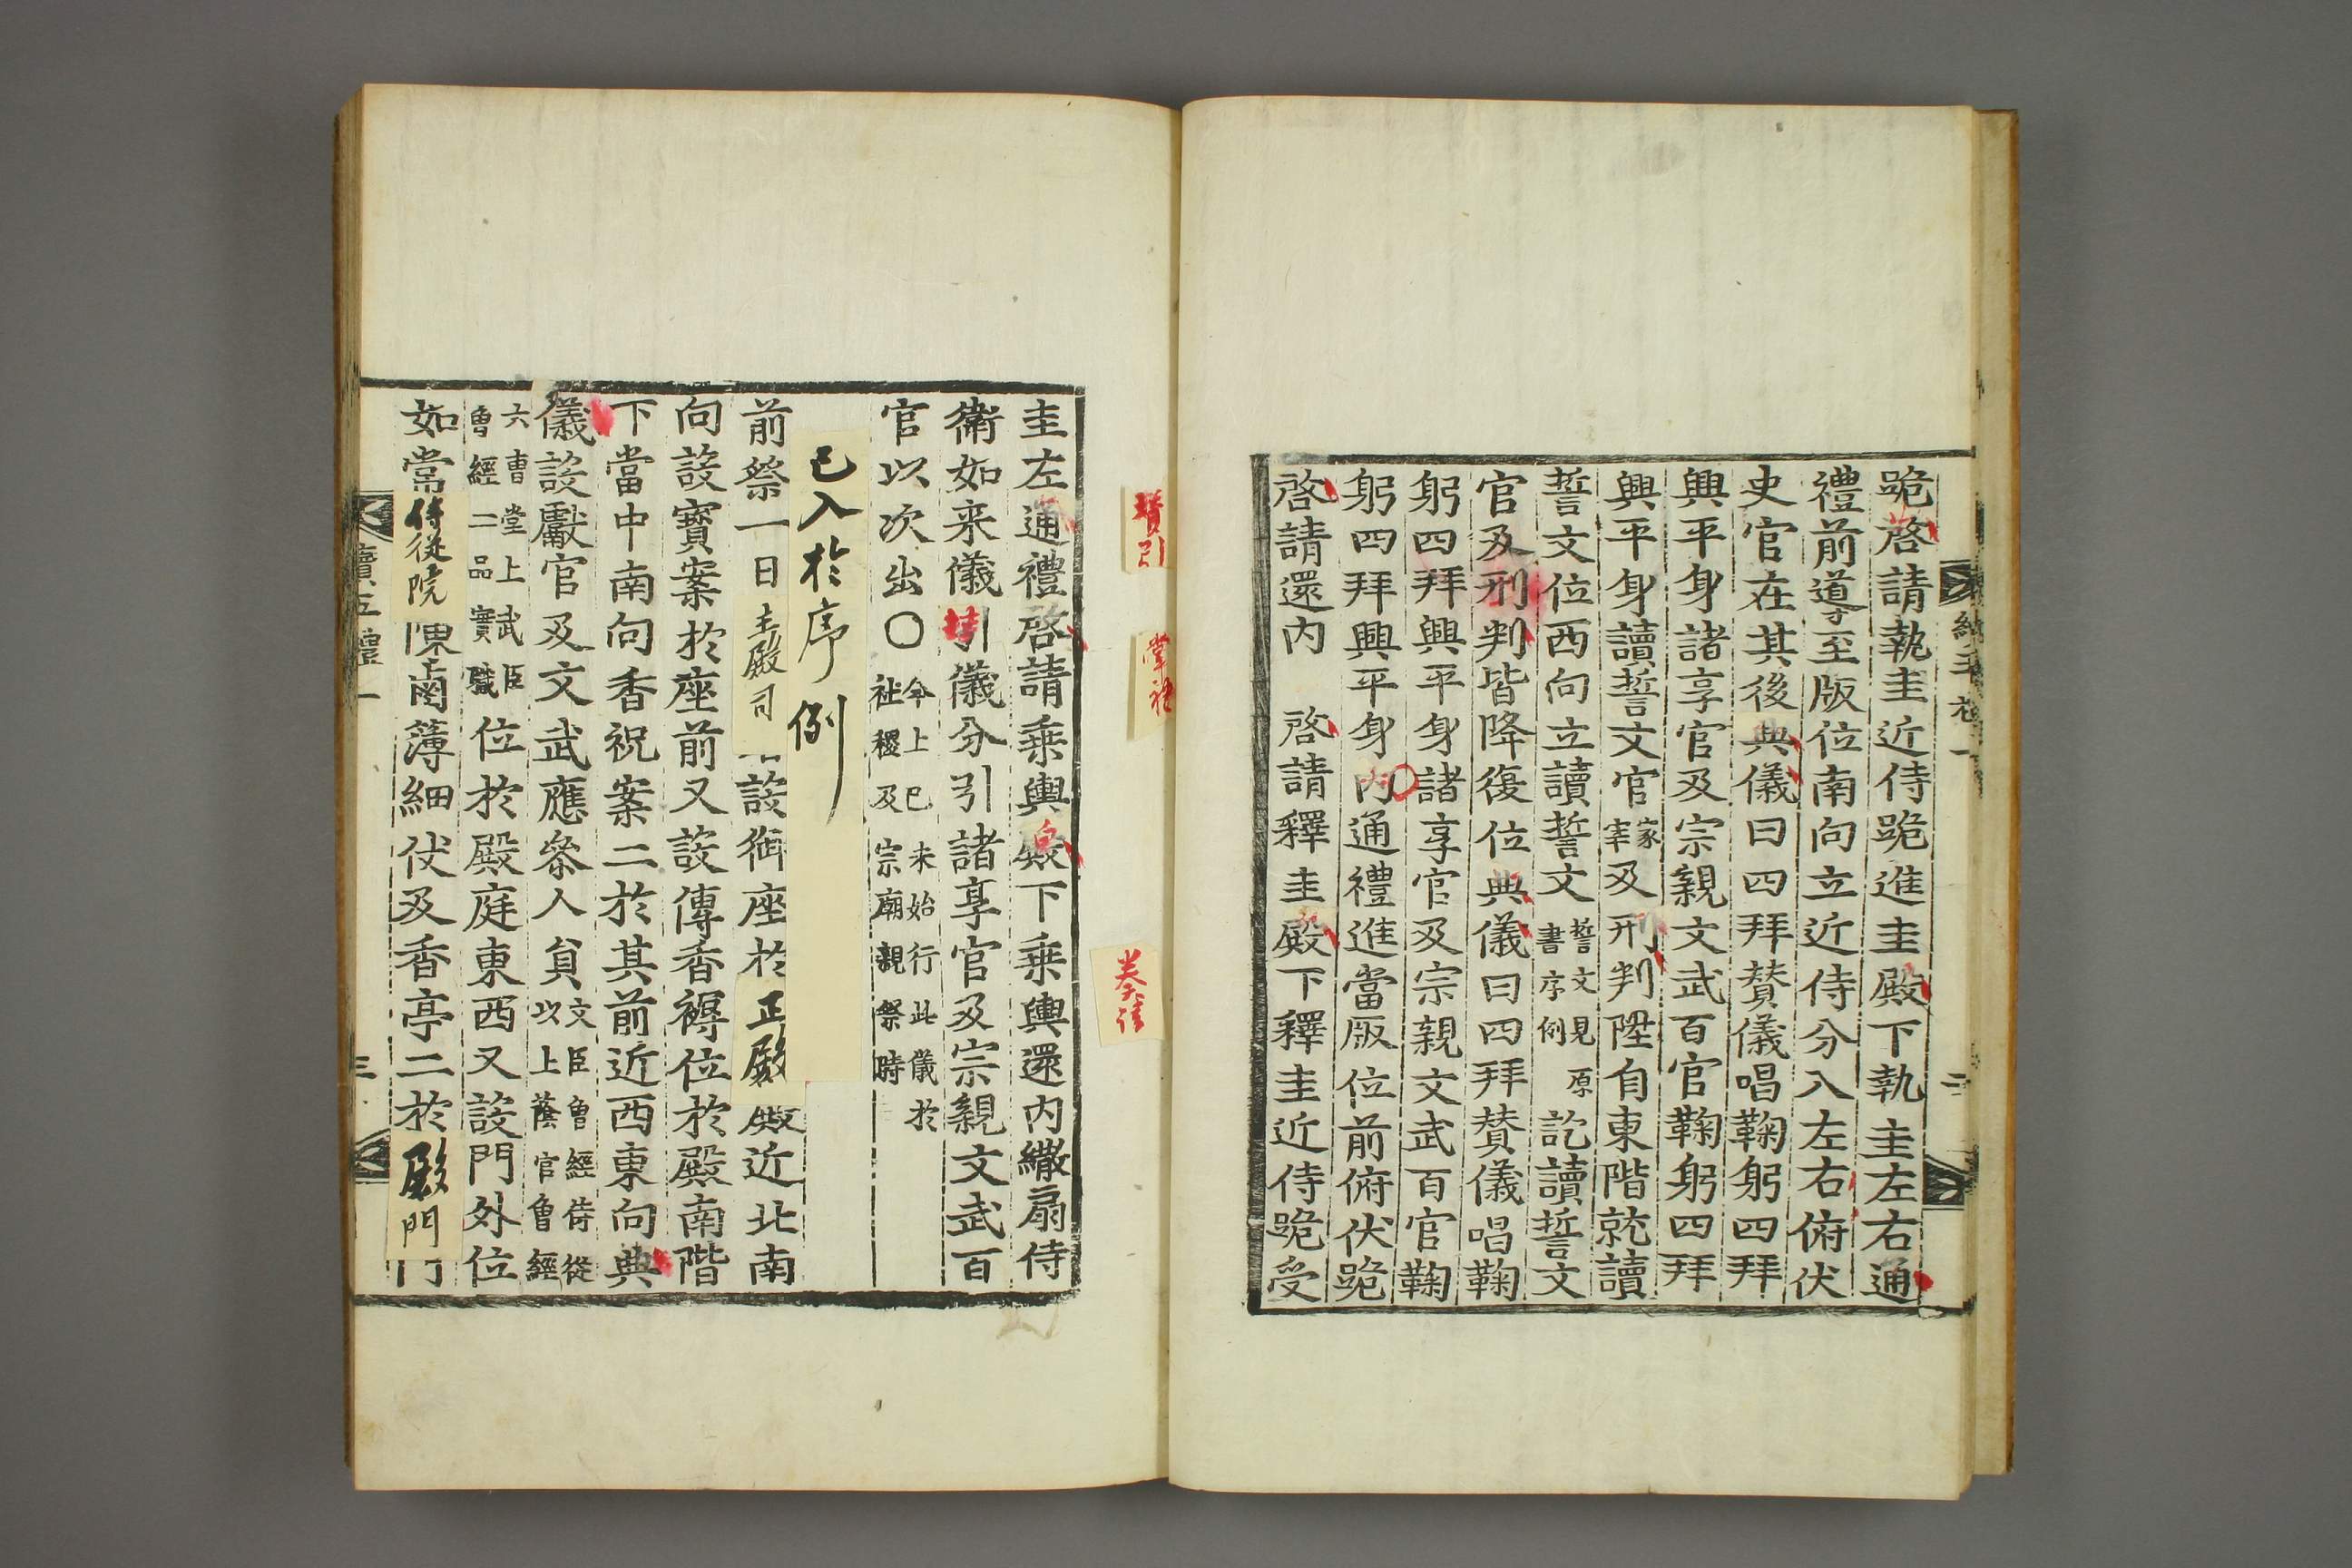 跪啓請執圭近侍跪進圭殿下執圭左右通
禮前導至版位南向立近侍分入左右俯伏
史官在其後典儀曰四拜贊儀唱鞠躬四拜
興平身諸享官及宗親文武百官鞠躬四拜
興平身讀誓文官冢宰及刑判陞自東階就讀
誓文位西向立讀誓文誓文見原書序例訖讀誓文
官及刑判皆降復位典儀曰四拜贊儀唱鞠
躬四拜興平身諸享官及宗親文武百官鞠
躬四拜興平身內通禮進當版位前俯伏跪
啓請還內 啓請釋圭殿下釋圭近侍跪受
贊引
掌禮
奏請
圭左通禮啓請乘輿殿下乘輿還內繖扇侍
衛如來儀引儀分引諸享官及宗親文武百
官以次出〇今上己未始行此儀於社稷及宗廟親祭時
已入於序例
前祭一日主殿司設御座於正殿近北南
向設寶案於座前又設傳香褥位於殿南階
下當中南向香祝案二於其前近西東向典
儀設獻官及文武應參人員文臣曾經侍從以上蔭官曾經
六曹堂上武臣曾經二品實職位於殿庭東西又設門外位
如常侍從院陳鹵簿細仗及香亭二於殿門
續五禮一
三